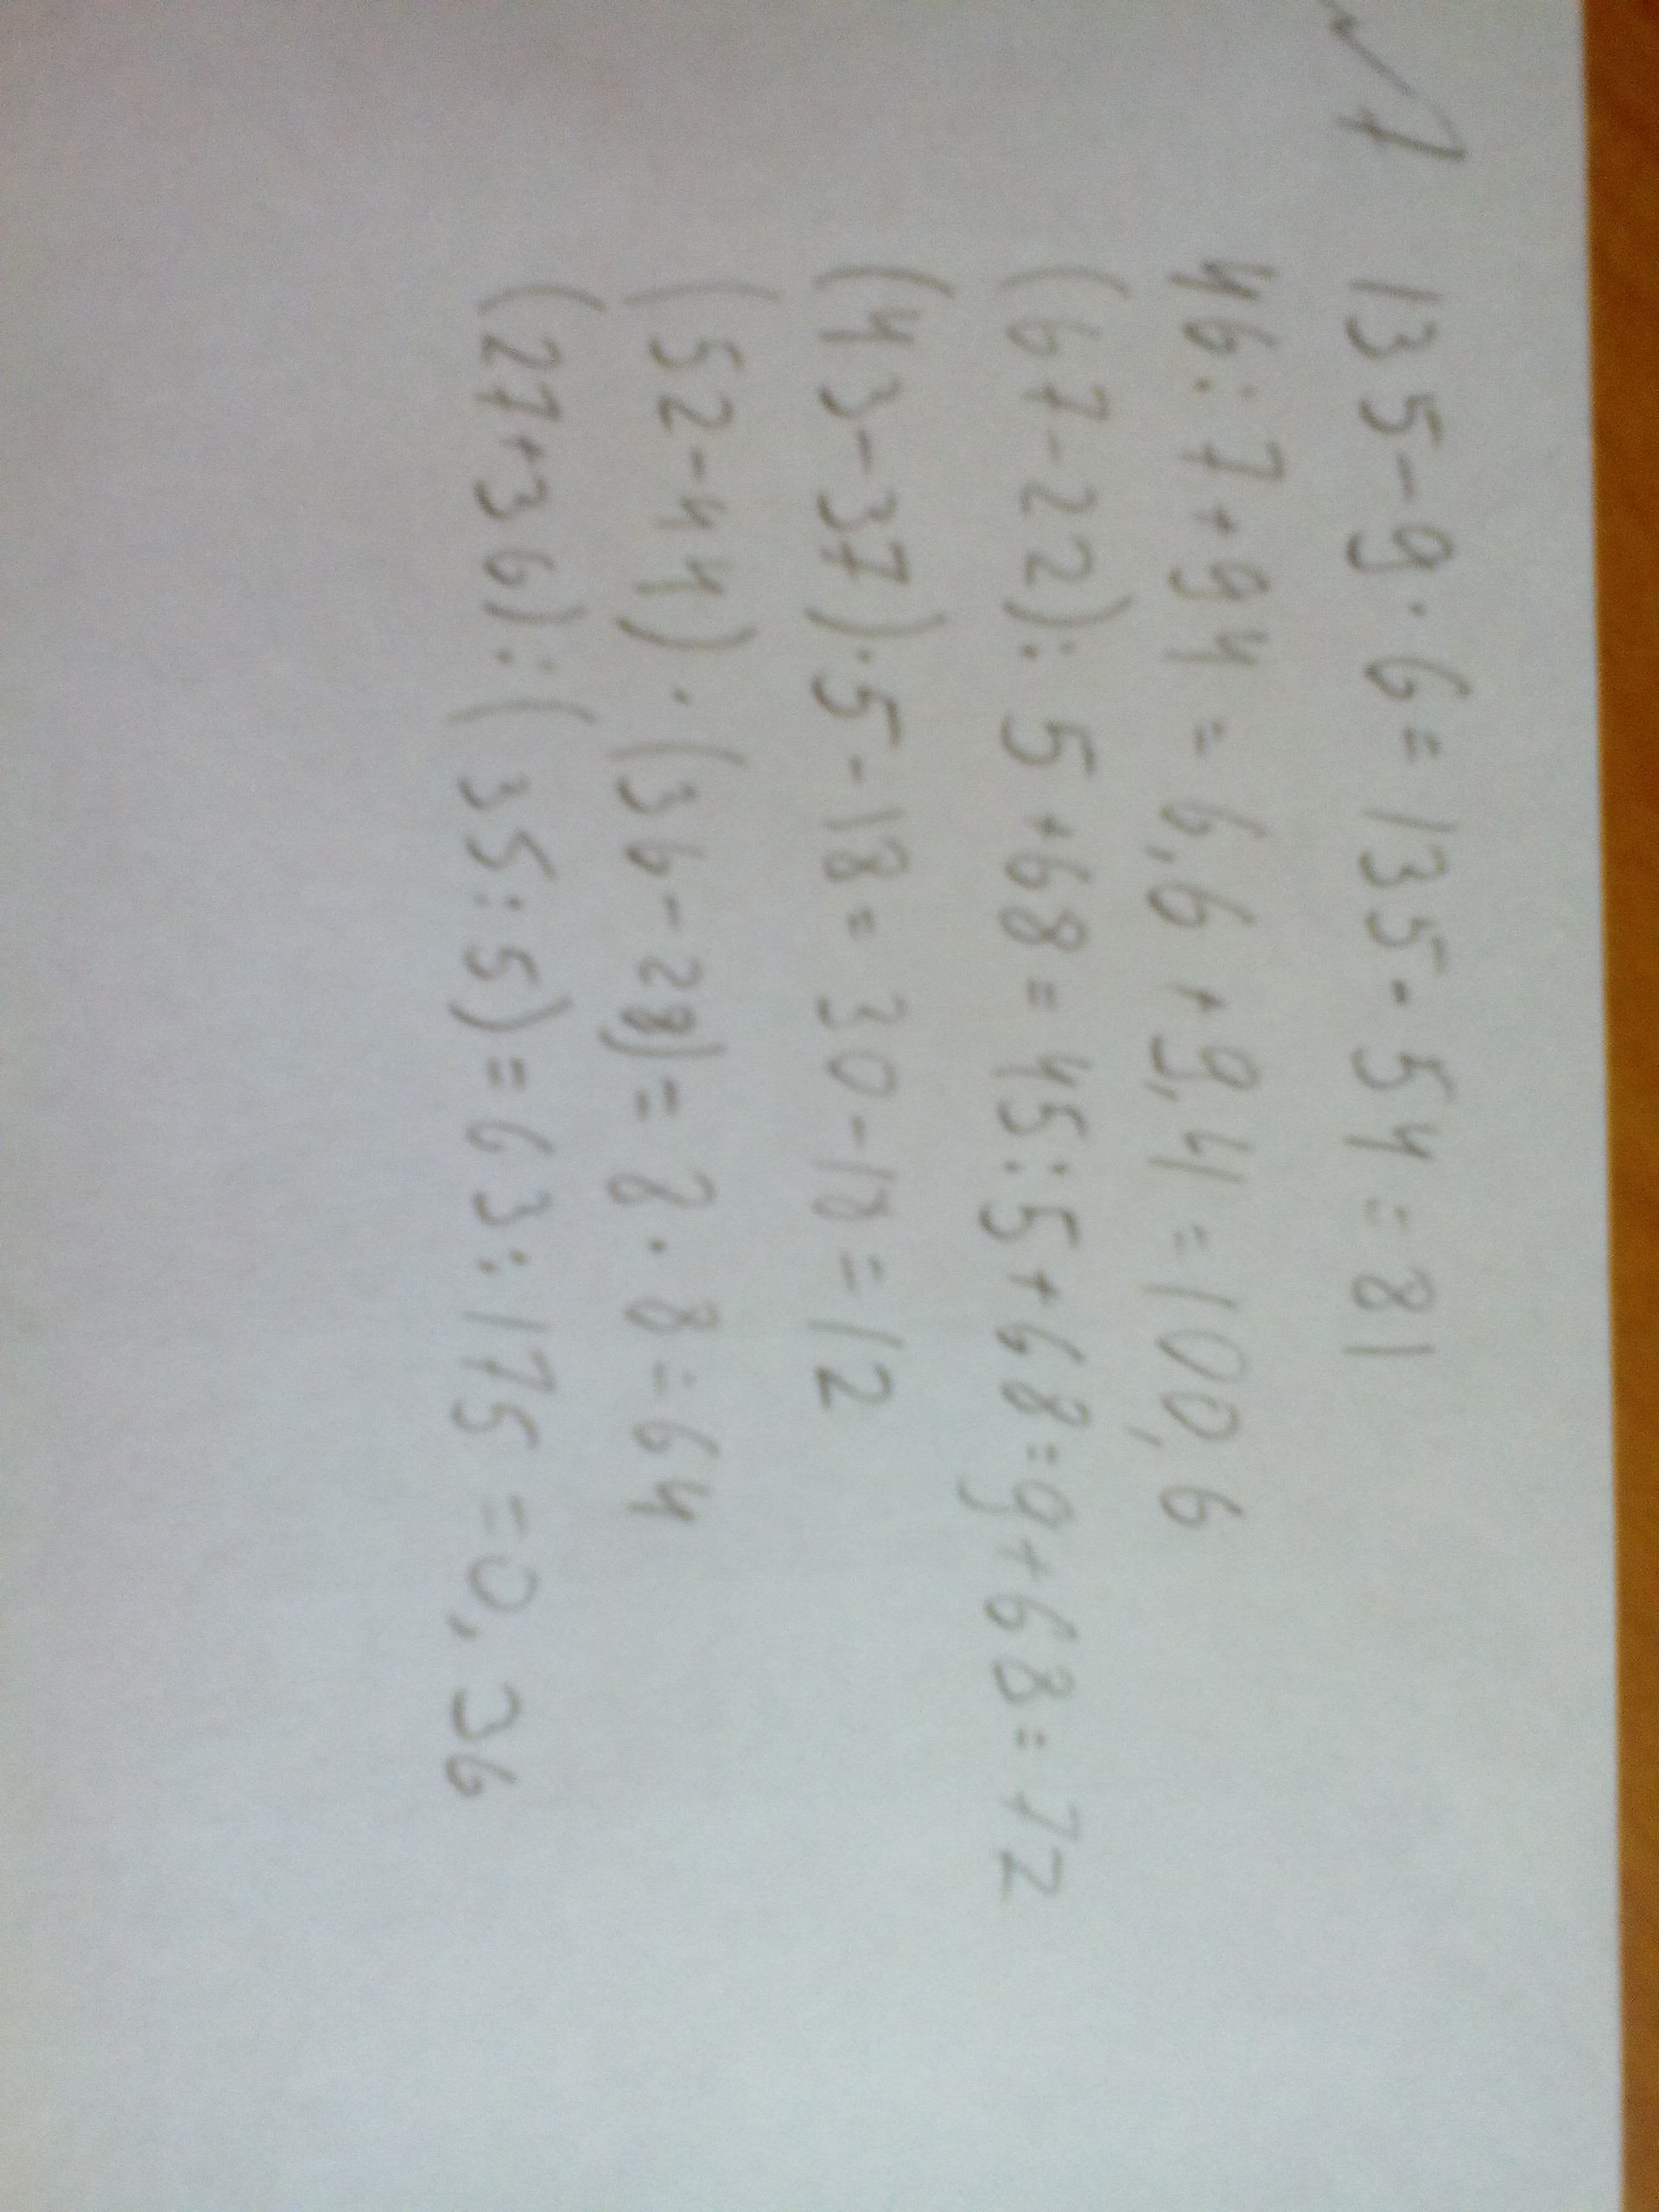 №1
135-9·6=135-54=81
46:7+94=6,6+9,4=100,6
(67-22):5+68=45:5+68=9+68=72
(43-37)·5-18=30-18=12
(52-44)·(36-28)=8·8=64
(27+36):(35:5)=63:175=0,36